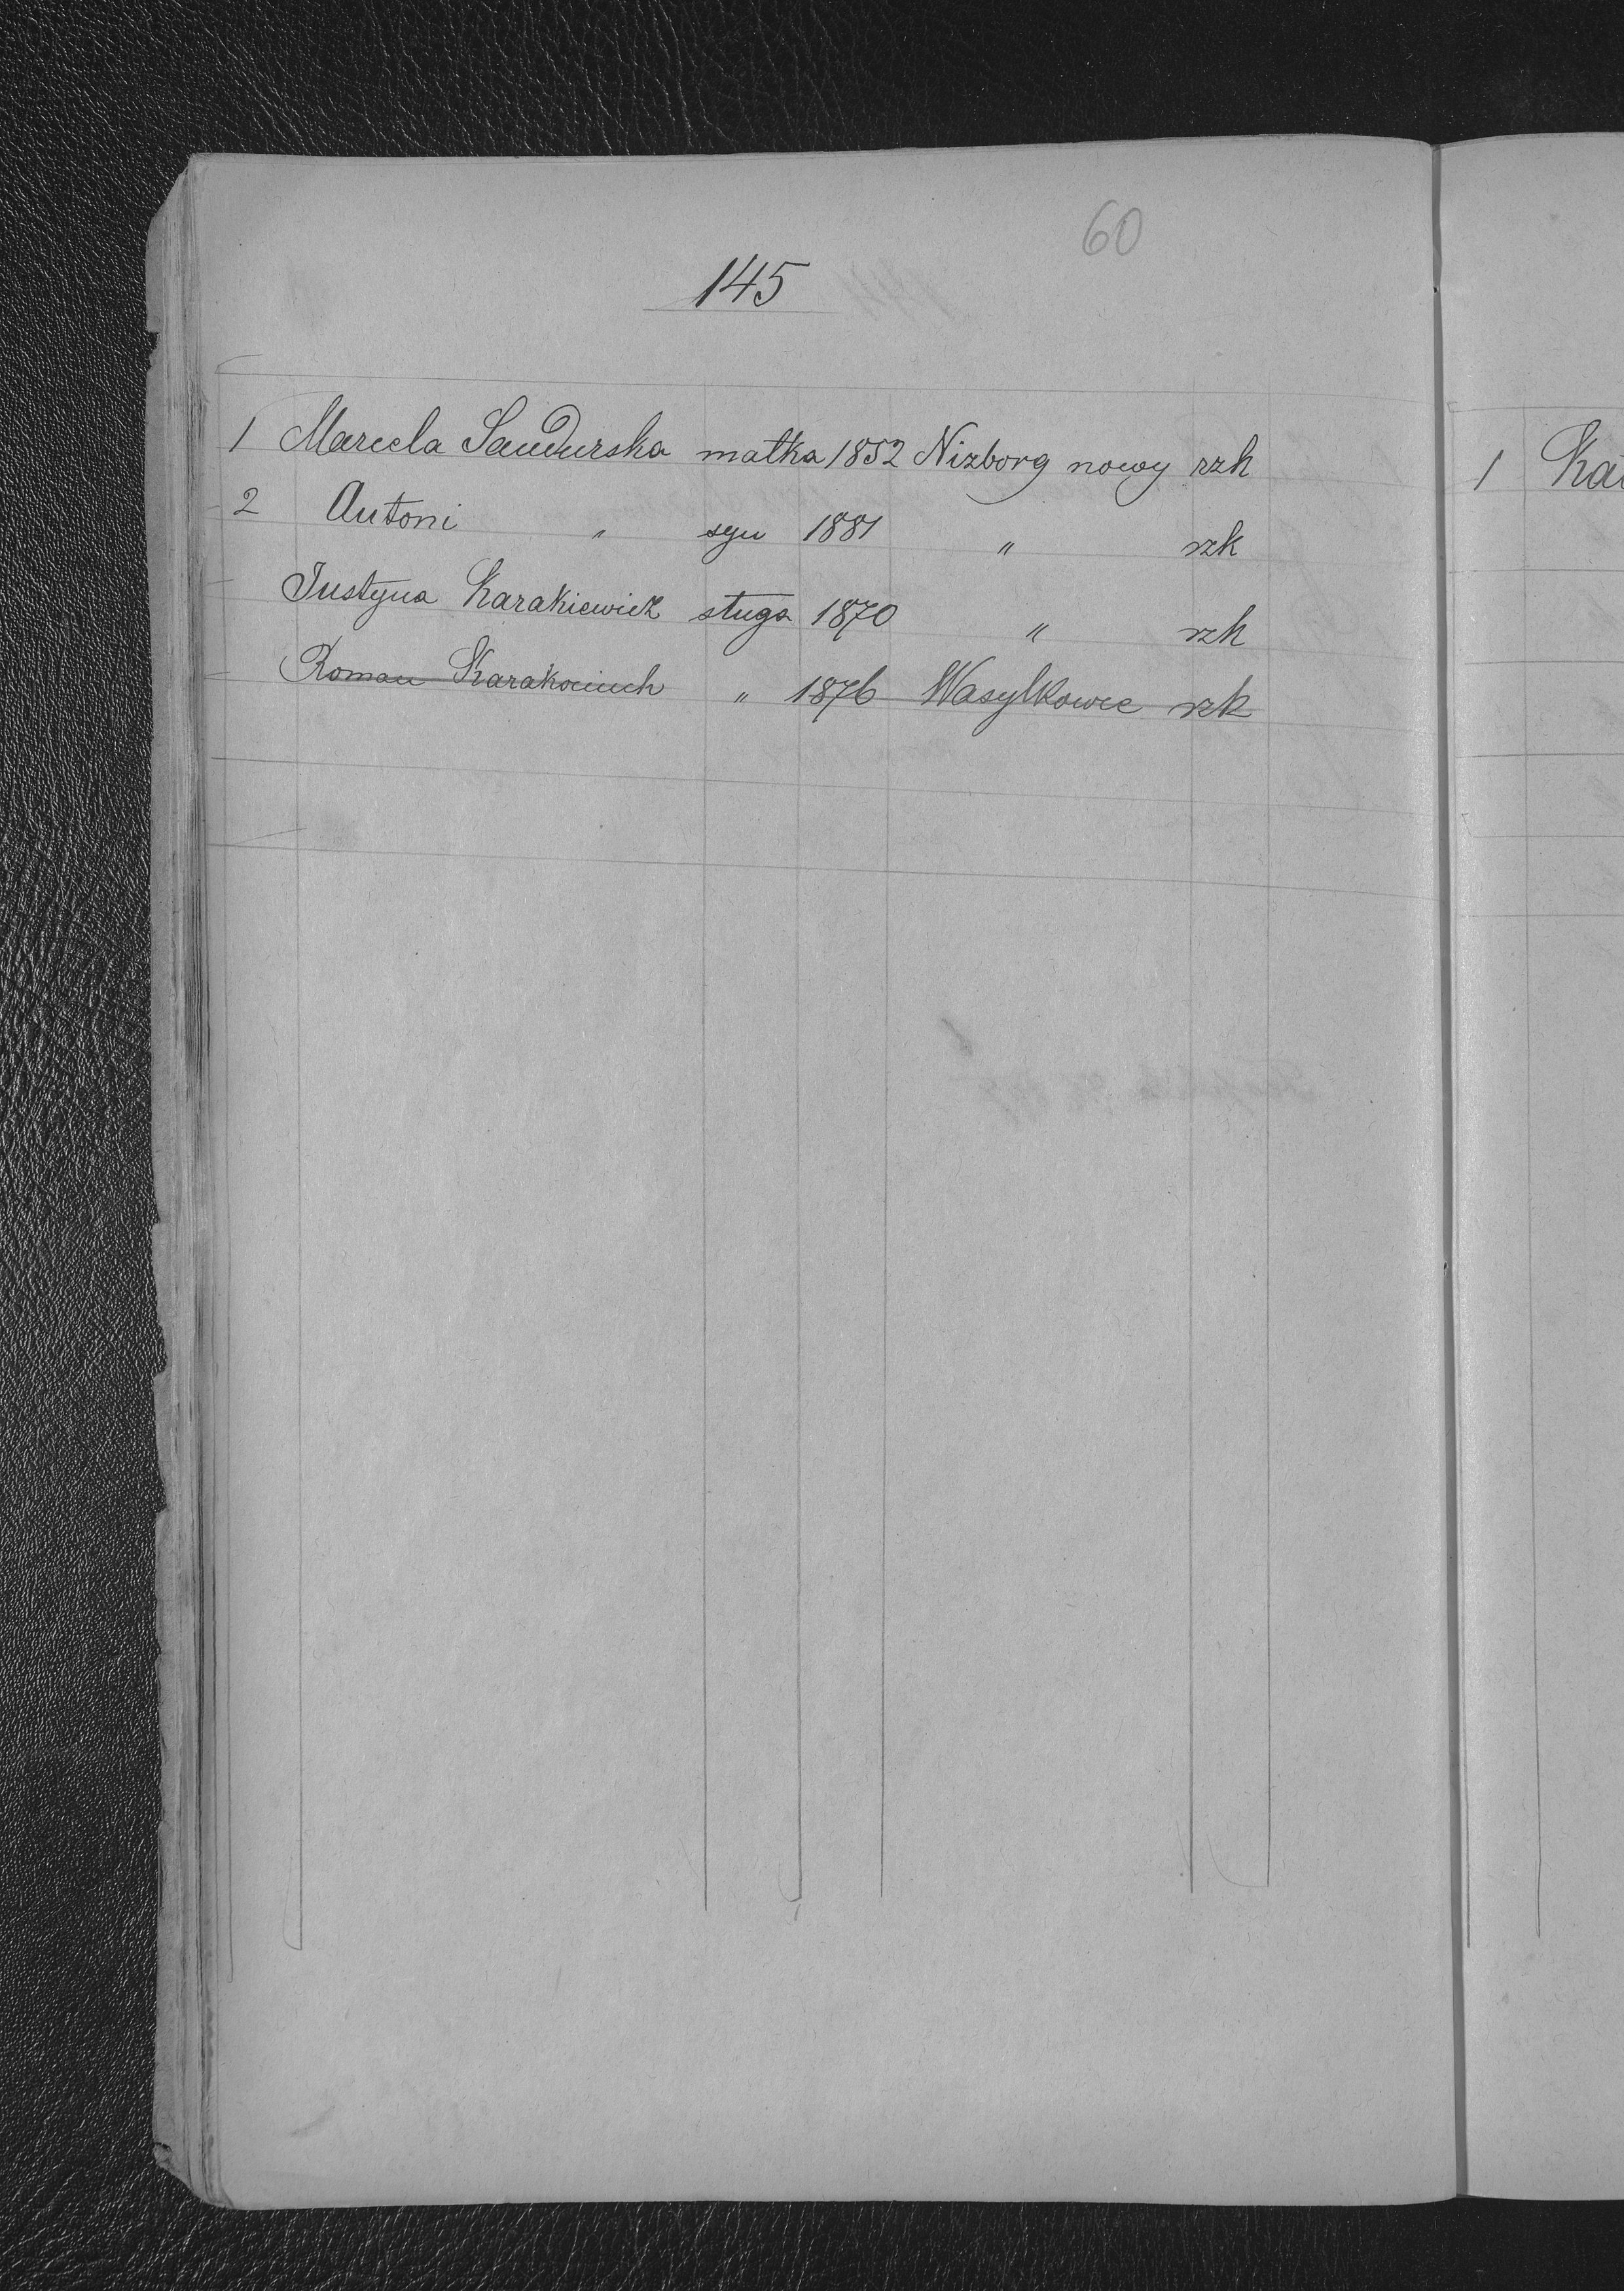 60
145
1 Marcela Sandurska matka 1852 Nizborg nowy rzk
2 Antoni " syn 1881 " rzk
Justyna Karakiewicz sługa 1870 " rzk
Roman " 1876 Wasylkowce rzk
1